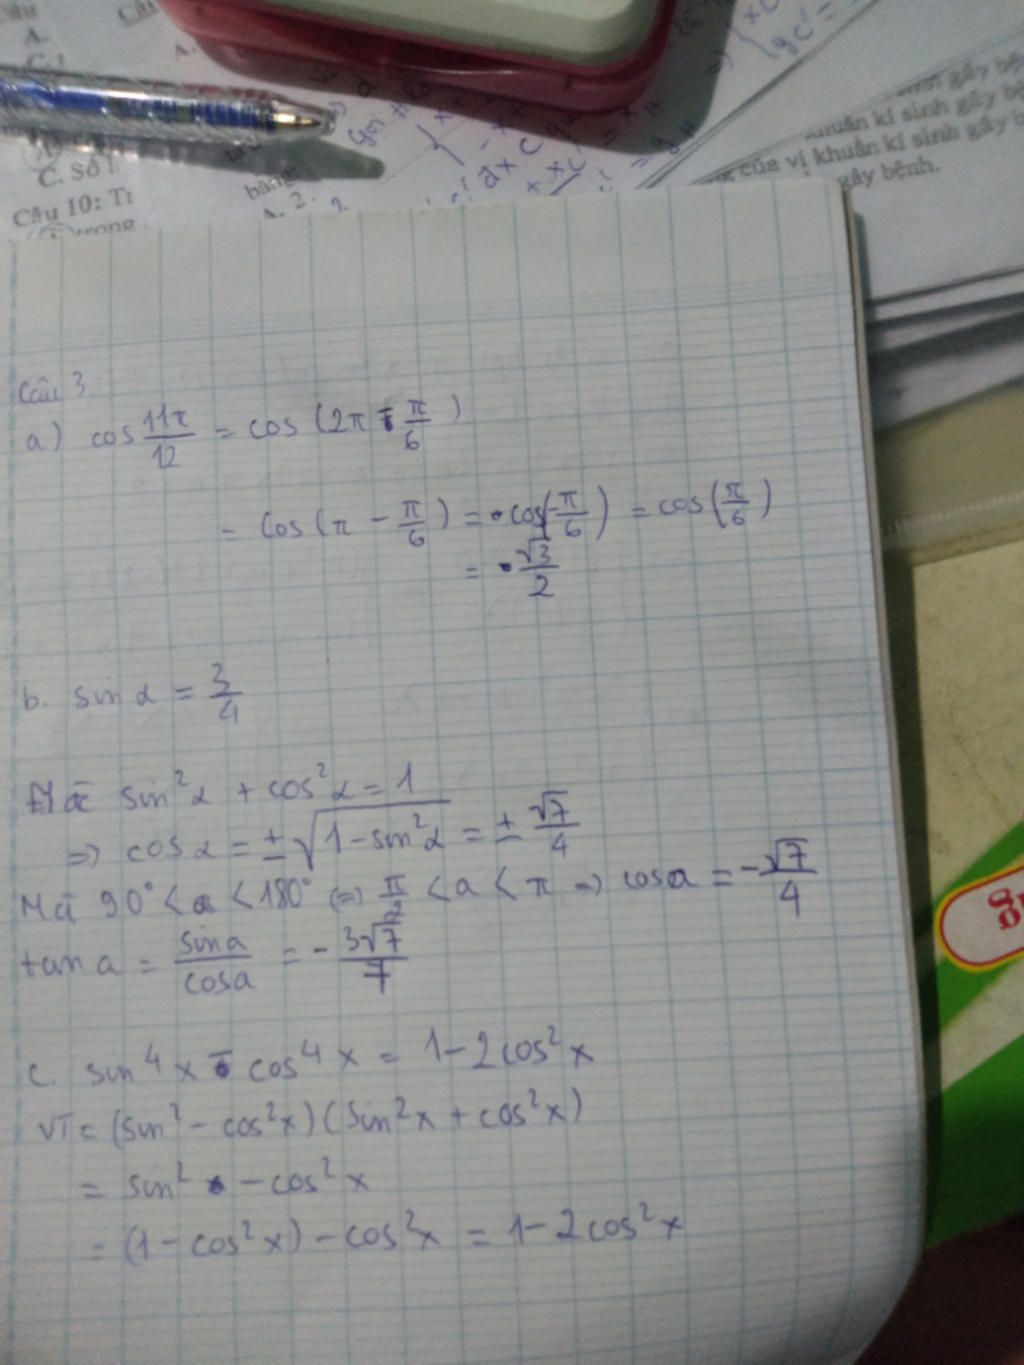 A.
C. Số
Câu 10: Tì
bằng:
A. 2.
khuẩn kí sinh gây bệ
của vi khuẩn kí sinh gây b
gây bệnh.
Câu 3:
a) cos 11π/12 = cos (2π - π/6)
= cos (π - π/6) = cos(-π/6) = cos(π/6)
= √3/2
b. sin α = 3/4
Mà sin²α + cos²α = 1
=> cos α = ± √(1 - sin²α) = ± √7/4
Mà 90° < a < 180° (=) π/2 < a < π => cos a = - √7/4
tan a = sin a/cos a = - 3√7/7
c. sin⁴x - cos⁴x = 1 - 2cos²x
VT = (sin² - cos²x)(sin²x + cos²x)
= sin² - cos²x
= (1 - cos²x) - cos²x = 1 - 2cos²x